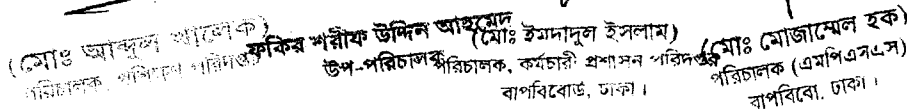 (মোঃ আব্দুল খালেক)
পরিচালক,
ফকির শরীফ উদ্দিন আহমেদ
উপ-পরিচালক
(মোঃ ইমদাদুল ইসলাম)
পরিচালক, কর্মচারী প্রশাসন পরিদপ্তর
বাপবিবোর্ড, ঢাকা।
(মোঃ মোজাম্মেল হক)
পরিচালক (এমপিএসএস)
বাপবিবো, ঢাকা।